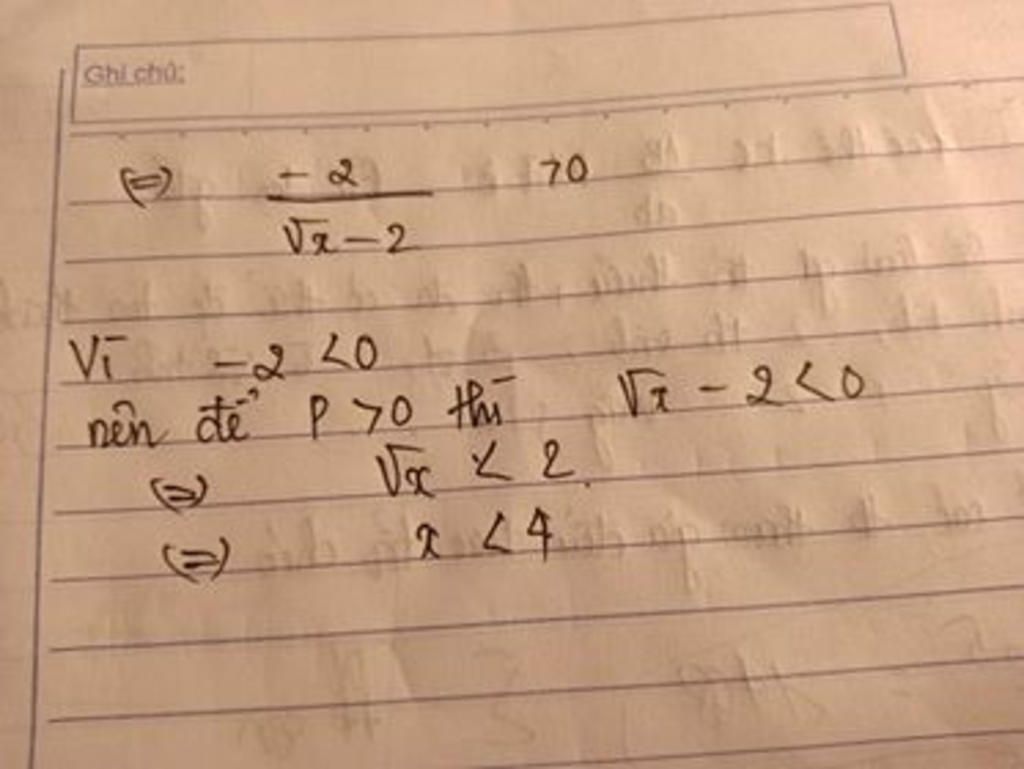 Ghi chú:
(=) -2 / √x - 2 > 0
Vì -2 < 0
nên để P > 0 thì √x - 2 < 0
(=) √x < 2
(=) x < 4